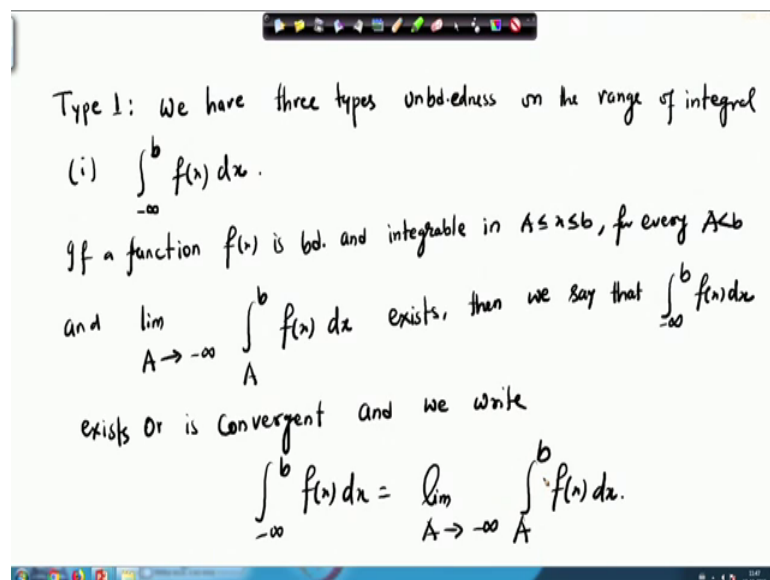 Type 1: We have three types unbd.edness on the range of integral
(i) ∫_{-∞}^{b} f(x) dx.
If a function f(x) is bd. and integrable in A ≤ x ≤ b, for every A<b
and lim_{A → -∞} ∫_{A}^{b} f(x) dx exists, then we say that ∫_{-∞}^{b} f(x) dx
exists or is convergent and we write
∫_{-∞}^{b} f(x) dx = lim_{A → -∞} ∫_{A}^{b} f(x) dx.
11:47